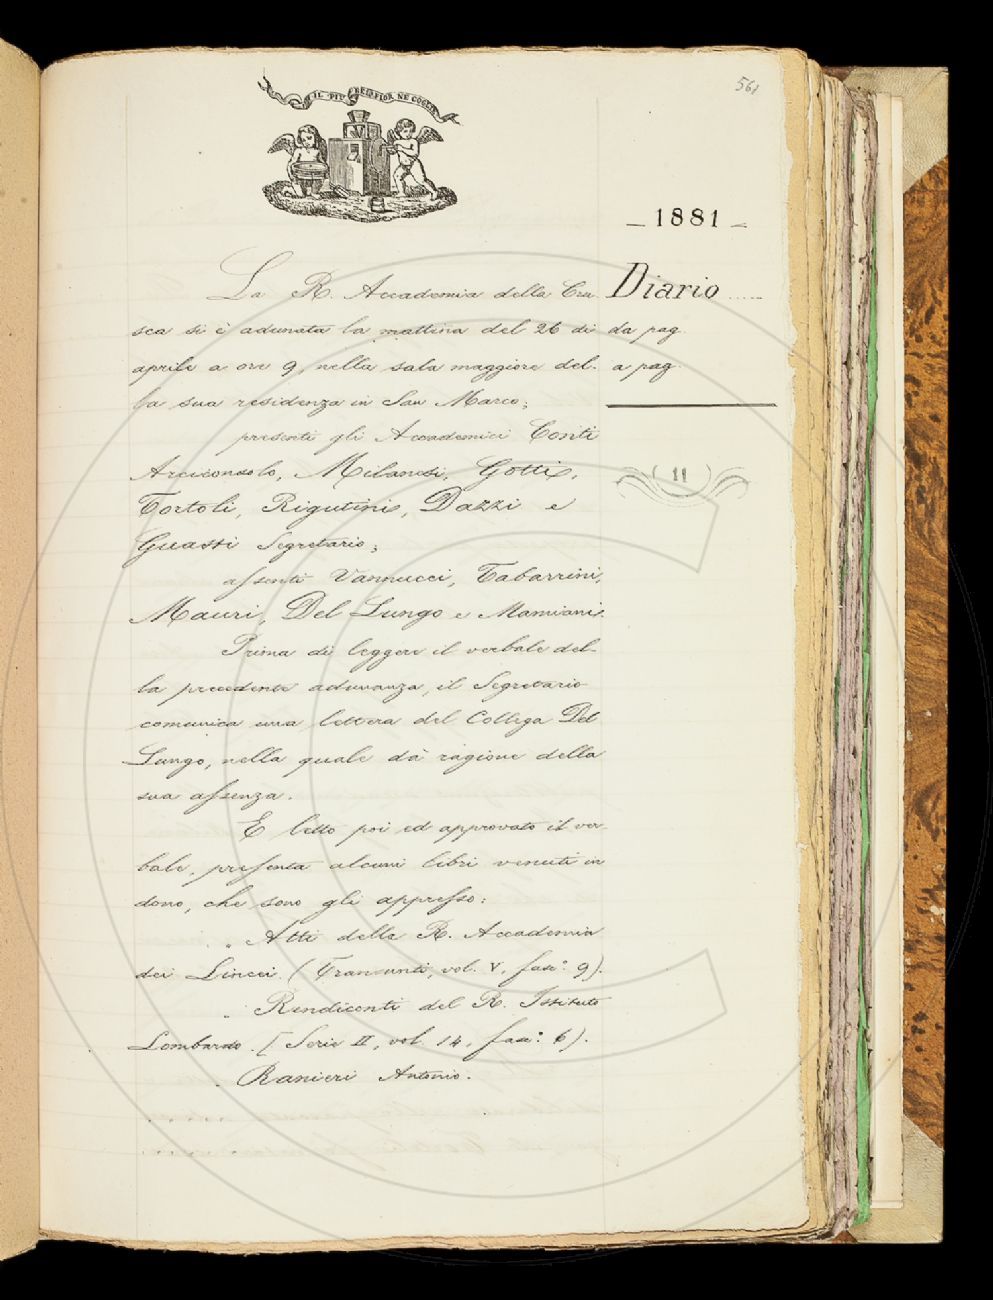 IL PIÙ BEL FIOR NE COGLIE
561
— 1881 —
La R. Accademia della Cru-
sca si è adunata la mattina del 26 di
aprile a ore 9, nella sala maggiore del-
la sua residenza in San Marco;
presenti gli Accademici Conti
Arciconsolo, Milanesi, Gotti,
Tortoli, Rigutini, Dazzi e
Guasti Segretario;
assenti Vannucci, Tabarrini,
Mauri, Del Lungo e Mamiani.
Prima di leggere il verbale del-
la precedente adunanza, il Segretario
comunica una lettera del Collega Del
Lungo, nella quale dà ragione della
sua assenza.
E letto poi ed approvato il ver-
bale, presenta alcuni libri venuti in
dono, che sono gli appresso:
„ Atti della R. Accademia
dei Lincei. (Transunti, vol. V, fasc.° 9).
„ Rendiconti del R. Istituto
Lombardo. (Serie II, vol. 14, fasc.° 6).
„ Ranieri Antonio.
Diario ......
da pag.
a pag.
( 11 )